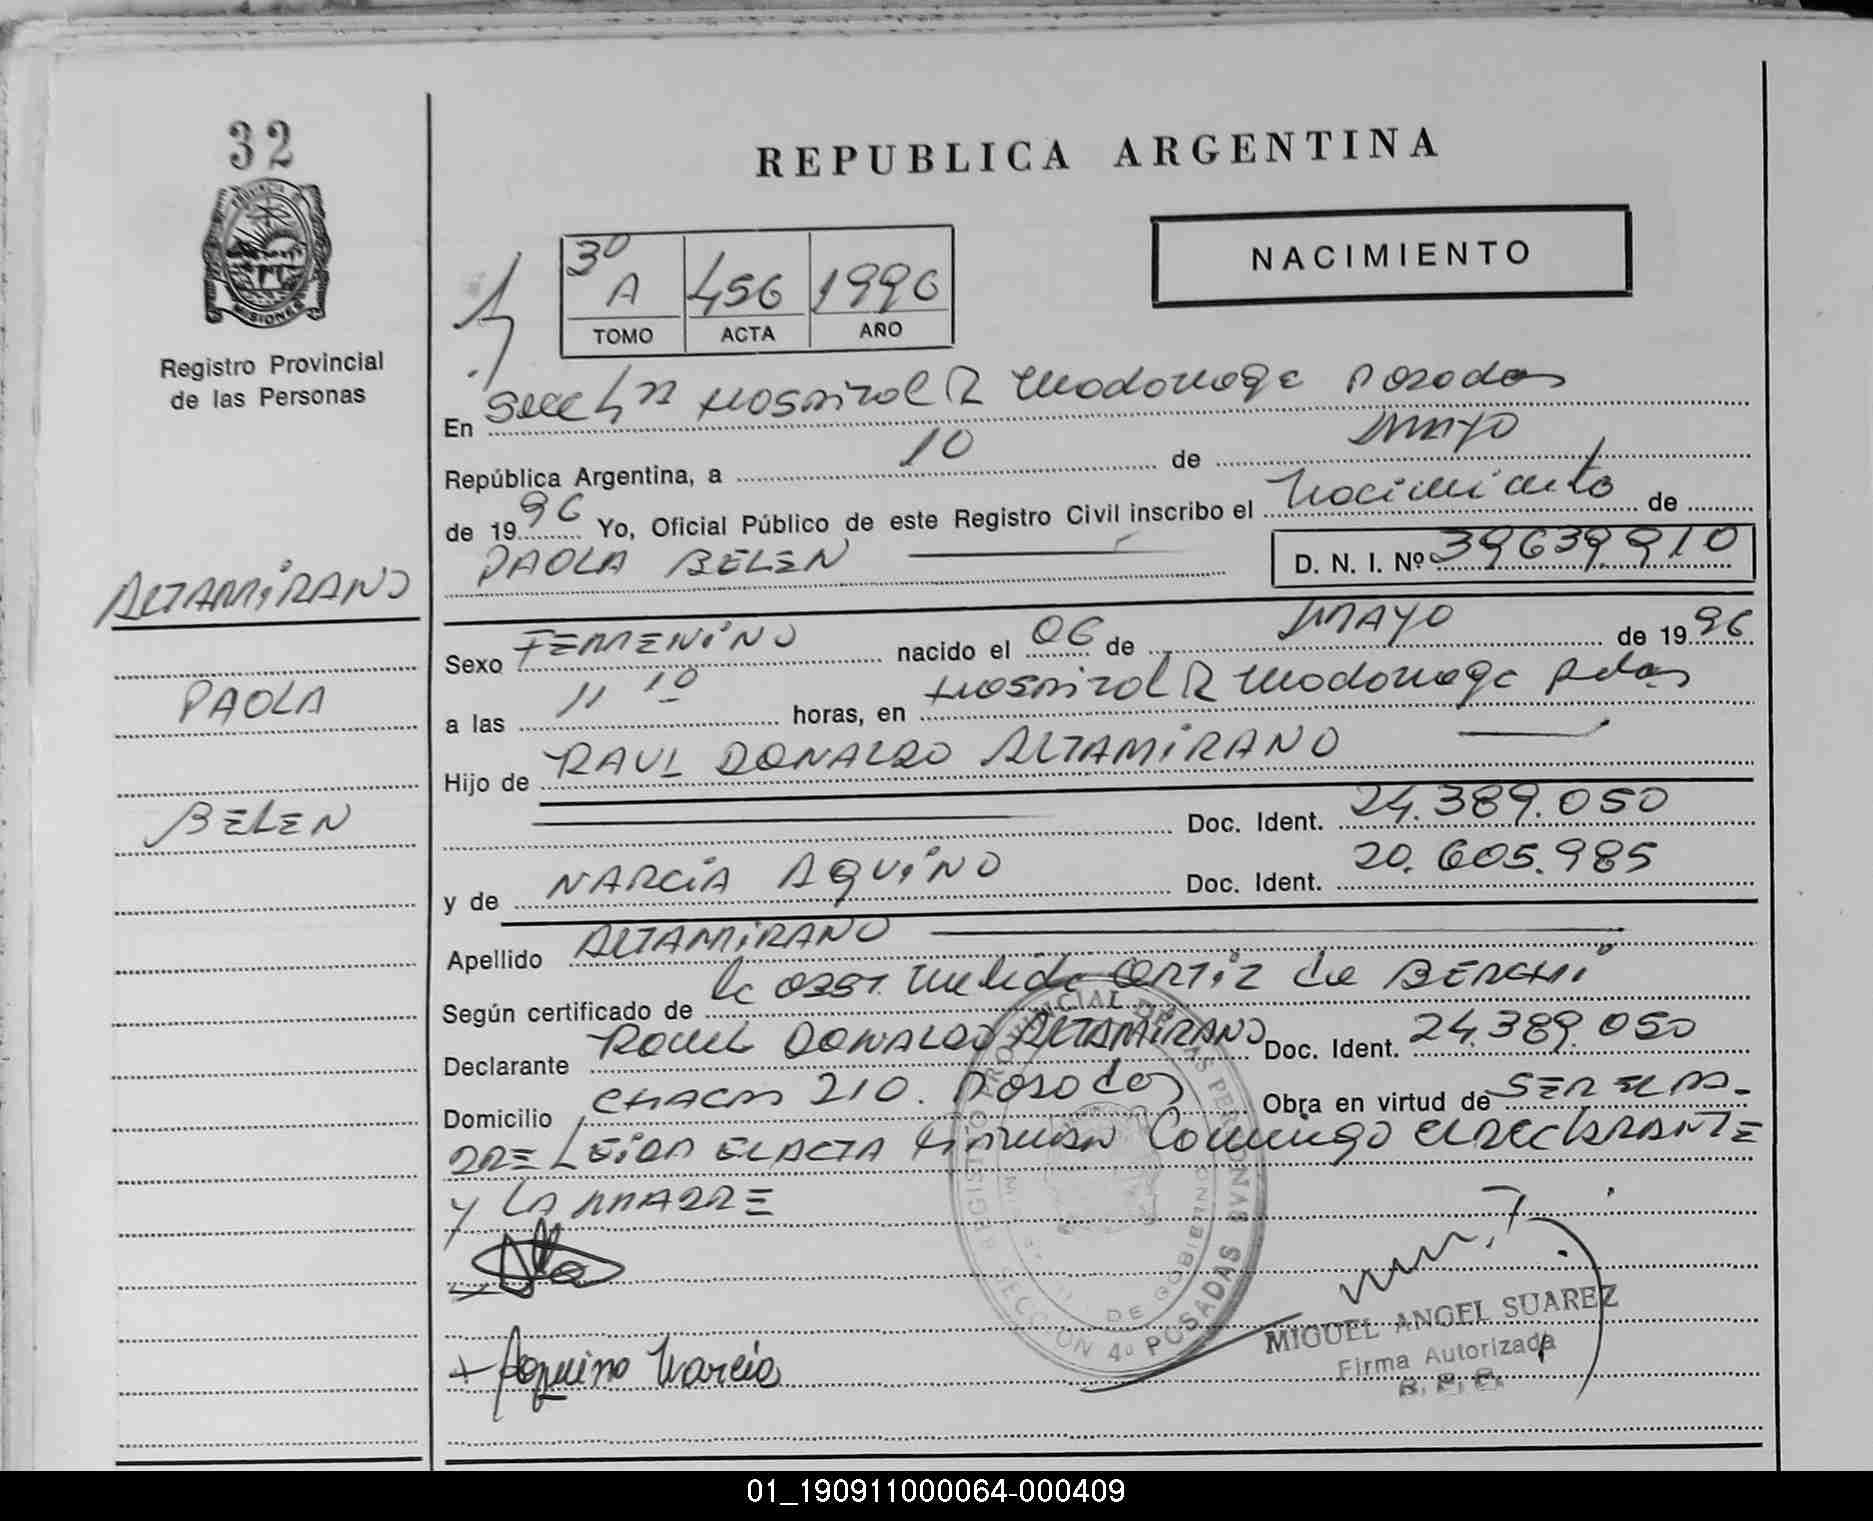 32
REPUBLICA ARGENTINA
NACIMIENTO
3º
A 456 1996
TOMO ACTA AÑO
MISIONES
Registro Provincial
de las Personas
En Secc 4ª Hospital R Madariaga Posadas
República Argentina, a 10 de MAYO
de 1996 Yo, Oficial Público de este Registro Civil inscribo el Nacimiento de
PAOLA BELEN D. N. I. Nº 39639.910
ALTAMIRANO
PAOLA
BELEN
Sexo FEMENINO nacido el 06 de MAYO de 1996
a las 11 10 horas, en Hospital R Madariaga Pdas
Hijo de RAUL DONALDO ALTAMIRANO
Doc. Ident. 24.389.050
y de NARCIA AQUINO Doc. Ident. 20.605.985
Apellido ALTAMIRANO
Según certificado de la obst. ORTIZ de
Declarante RAUL DONALDO ALTAMIRANO Doc. Ident. 24.389.050
Domicilio CHACRA 210. Posadas Obra en virtud de SER EL PA-
DRE LEIDA EL ACTA Firman Conmigo el DECLARANTE
Y LA MADRE
Aquino Narcia
REGISTRO PROVINCIAL DE LAS PERSONAS
SECCION 4ª POSADAS
DE GOBIERNO
MIGUEL ANGEL SUAREZ
Firma Autorizada
01_190911000064-000409